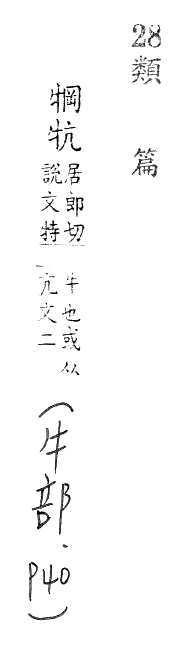 28類
篇
犅
牨
居郎切
說文特
牛也或从
亢文二
(牛部．P40)